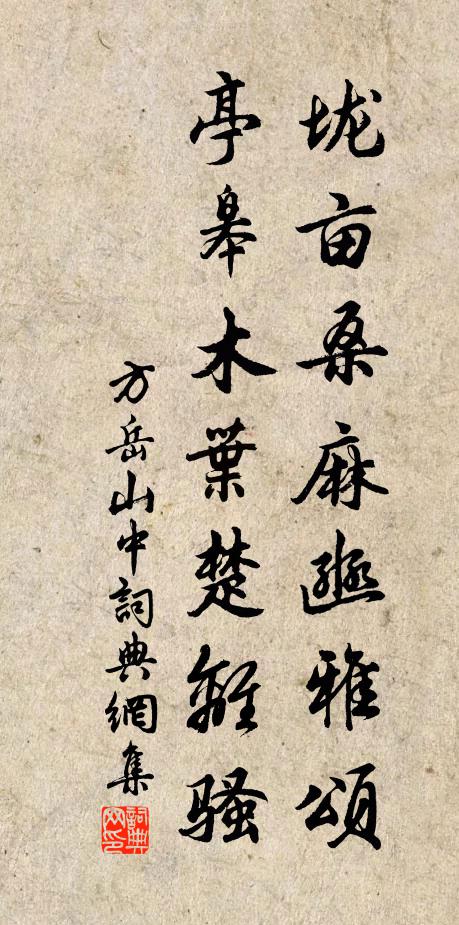 垅亩桑麻豳雅頌
亭皋木葉楚離骚
方岳山中詞典網集
詞典网印